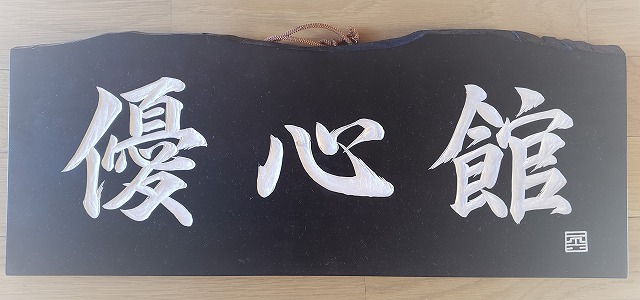 優心館